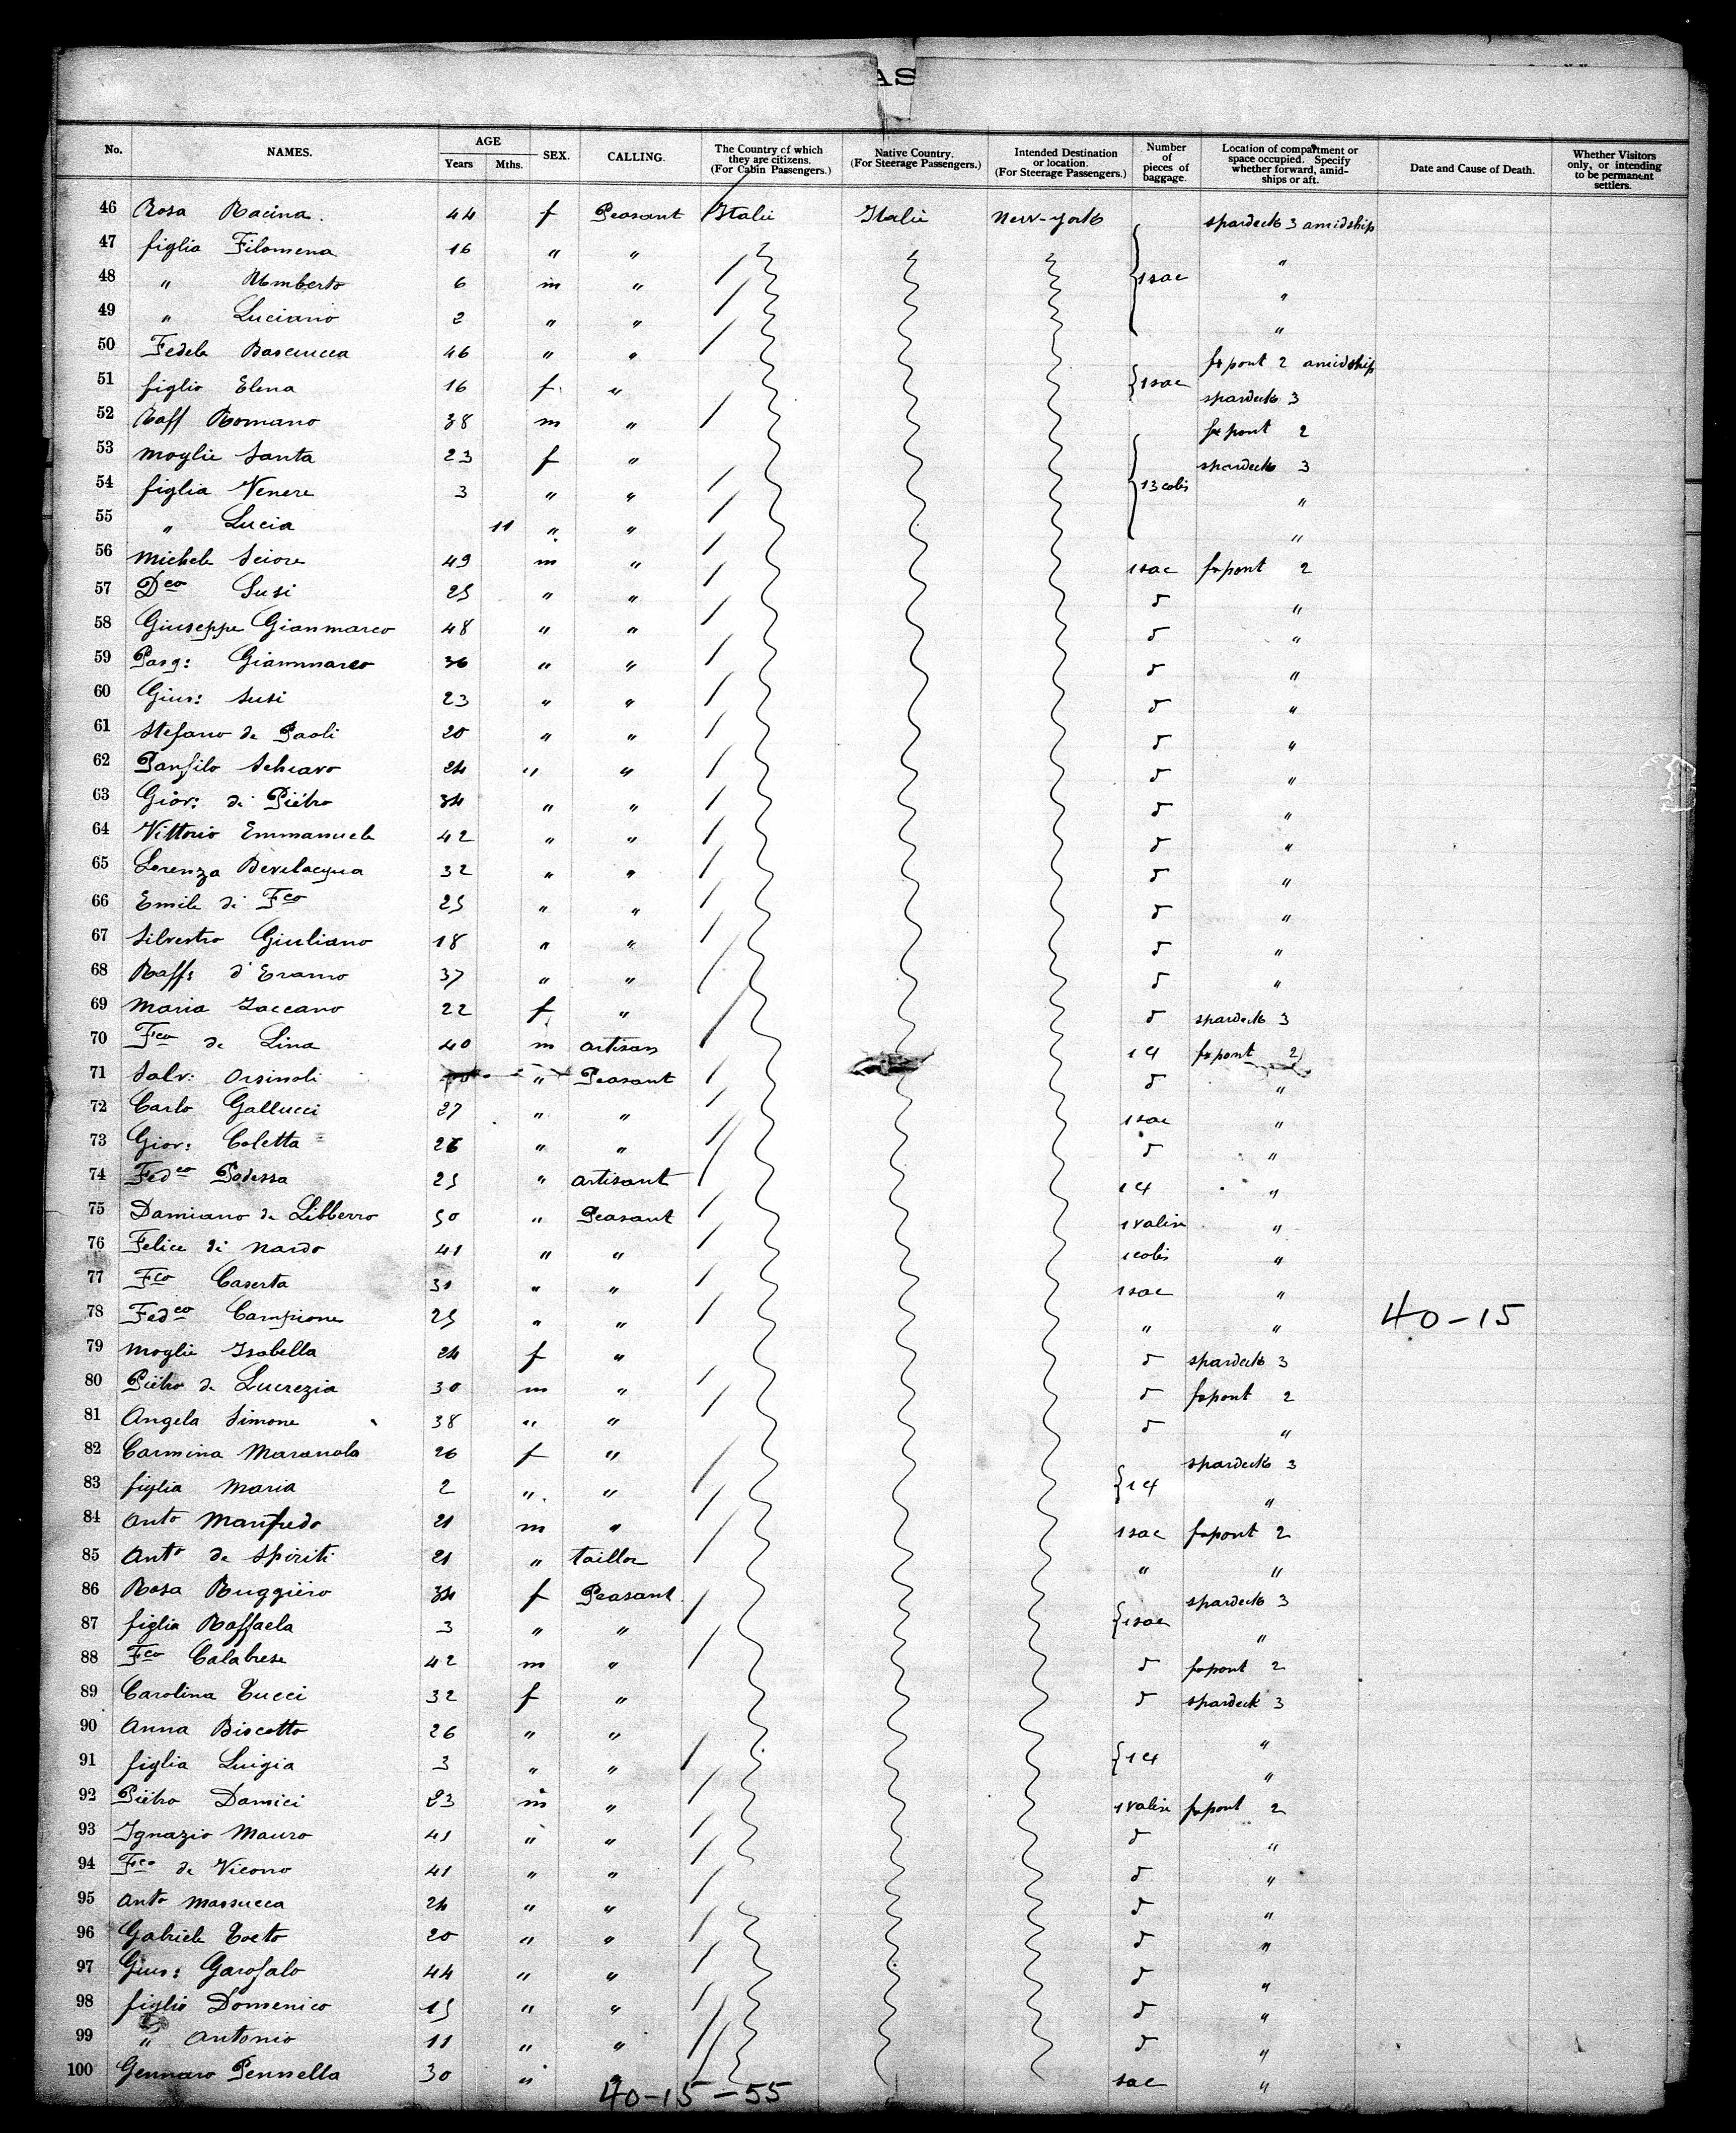 AS
No. NAMES. AGE Years Mths. SEX. CALLING. The Country of which they are citizens. (For Cabin Passengers.) Native Country. (For Steerage Passengers.) Intended Destination or location. (For Steerage Passengers.) Number of pieces of baggage. Location of compartment or space occupied. Specify whether forward, amidships or aft. Date and Cause of Death. Whether Visitors only, or intending to be permanent settlers.
46 Rosa Racina. 44 f Peasant Italie Italie New-York spardeck 3 amidship
47 figlia Filomena 16 " " "
48 " Umberto 6 m " 1 sac "
49 " Luciano 2 " " "
50 Fedele Basciucca 46 " " fxpont 2 amidship
51 figlio Elena 16 f. " 1 sac spardeck 3
52 Raff Romano 38 m " fxpont 2
53 Moglie Santa 23 f " spardeck 3
54 figlia Venere 3 " " 13 colis "
55 " Lucia 11 " " "
56 Michele Sciore 49 m " 1 sac fxpont 2
57 Dco Susi 25 " " d "
58 Giuseppe Gianmarco 48 " " d "
59 Pasq: Giammarco 36 " " d "
60 Gius: Susi 23 " " d "
61 Stefano de Paoli 20 " " d "
62 Panfilo Schiavo 24 " " d "
63 Giov: di Piétro 34 " " d "
64 Vittorio Emmanuele 42 " " d "
65 Lorenza Bevilacqua 32 " " d "
66 Emile di Fco 25 " " d "
67 Silvestro Giuliano 18 " " d "
68 Raff: d'Eramo 37 " " d "
69 Maria Zaccano 22 f " d spardeck 3
70 Fco de Lina 40 m artisan fxpont 2
71 Salv: Orsinoli " Peasant d "
72 Carlo Gallucci 27 " " 1 sac "
73 Giov: Coletta 26 " " d "
74 Fedco Podessa 25 " artisant "
75 Damiano de Libberro 50 " Peasant 1 valise "
76 Felice di Nardo 41 " " 1 colis "
77 Fco Caserta 31 " " 1 sac "
78 Fedco Campione 25 " " " " 40-15
79 Moglie Isabella 24 f " d spardeck 3
80 Piétro de Lucrezia 30 m " d fxpont 2
81 Angela Simone 38 " " d "
82 Carmina Maranola 26 f " spardeck 3
83 figlia Maria 2 " " "
84 Anto Manfredo 21 m " 1 sac fxpont 2
85 Anto de Spiriti 21 " taillor " "
86 Rosa Ruggiéro 34 f Peasant spardeck 3
87 figlia Raffaela 3 " " 1 sac "
88 Fco Calabrese 42 m " d fxpont 2
89 Carolina Tucci 32 f " d spardeck 3
90 Anna Biscotto 26 " " "
91 figlia Luigia 3 " " "
92 Piétro Damici 23 m " 1 valise fxpont 2
93 Ignazio Mauro 45 " " d "
94 Fco de Vicono 41 " " d "
95 Anto Massucca 24 " " d "
96 Gabriele Toeto 20 " " d "
97 Gius: Garofalo 44 " " d "
98 figlio Domenico 15 " " d "
99 " Antonio 11 " " d "
100 Gennaro Pennella 30 " " sac "
40-15-55